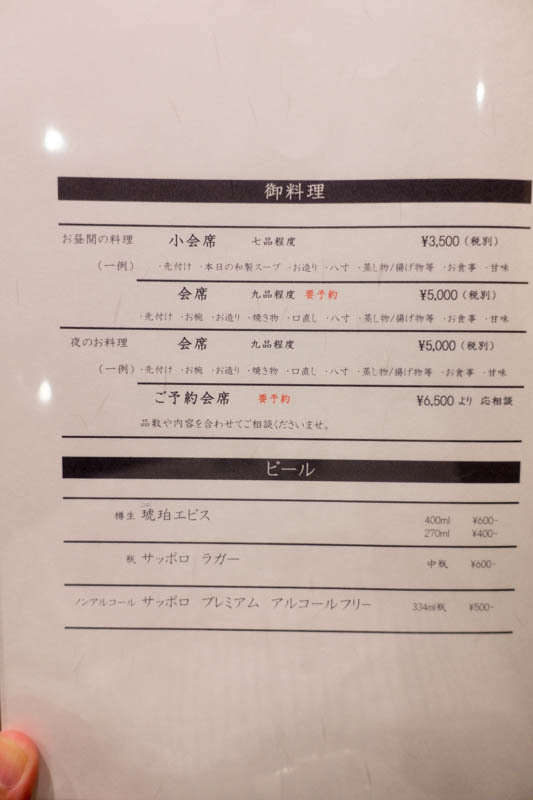 御料理
お昼間の料理 小会席 七品程度 ¥3,500 (税別)
(一例) ・先付け ・本日の和製スープ ・お造り ・八寸 ・蒸し物/揚げ物等 ・お食事 ・甘味
会席 九品程度 要予約 ¥5,000 (税別)
・先付け ・お椀 ・お造り ・焼き物 ・口直し ・八寸 ・蒸し物/揚げ物等 ・お食事 ・甘味
夜のお料理 会席 九品程度 ¥5,000 (税別)
(一例) ・先付け ・お椀 ・お造り ・焼き物 ・口直し ・八寸 ・蒸し物/揚げ物等 ・お食事 ・甘味
ご予約会席 要予約 ¥6,500 より 応相談
品数や内容を合わせてご相談くださいませ。
ビール
樽生 琥珀エビス 400ml ¥600-
270ml ¥400-
瓶 サッポロ ラガー 中瓶 ¥600-
ノンアルコール サッポロ プレミアム アルコールフリー 334ml瓶 ¥500-